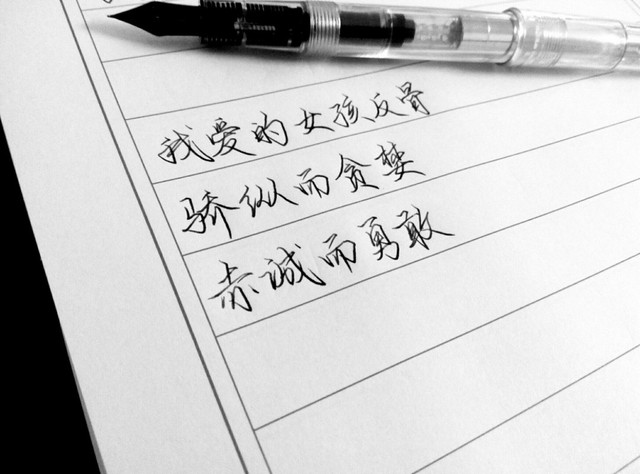 我爱的女孩反骨
骄纵而贪婪
赤诚而勇敢